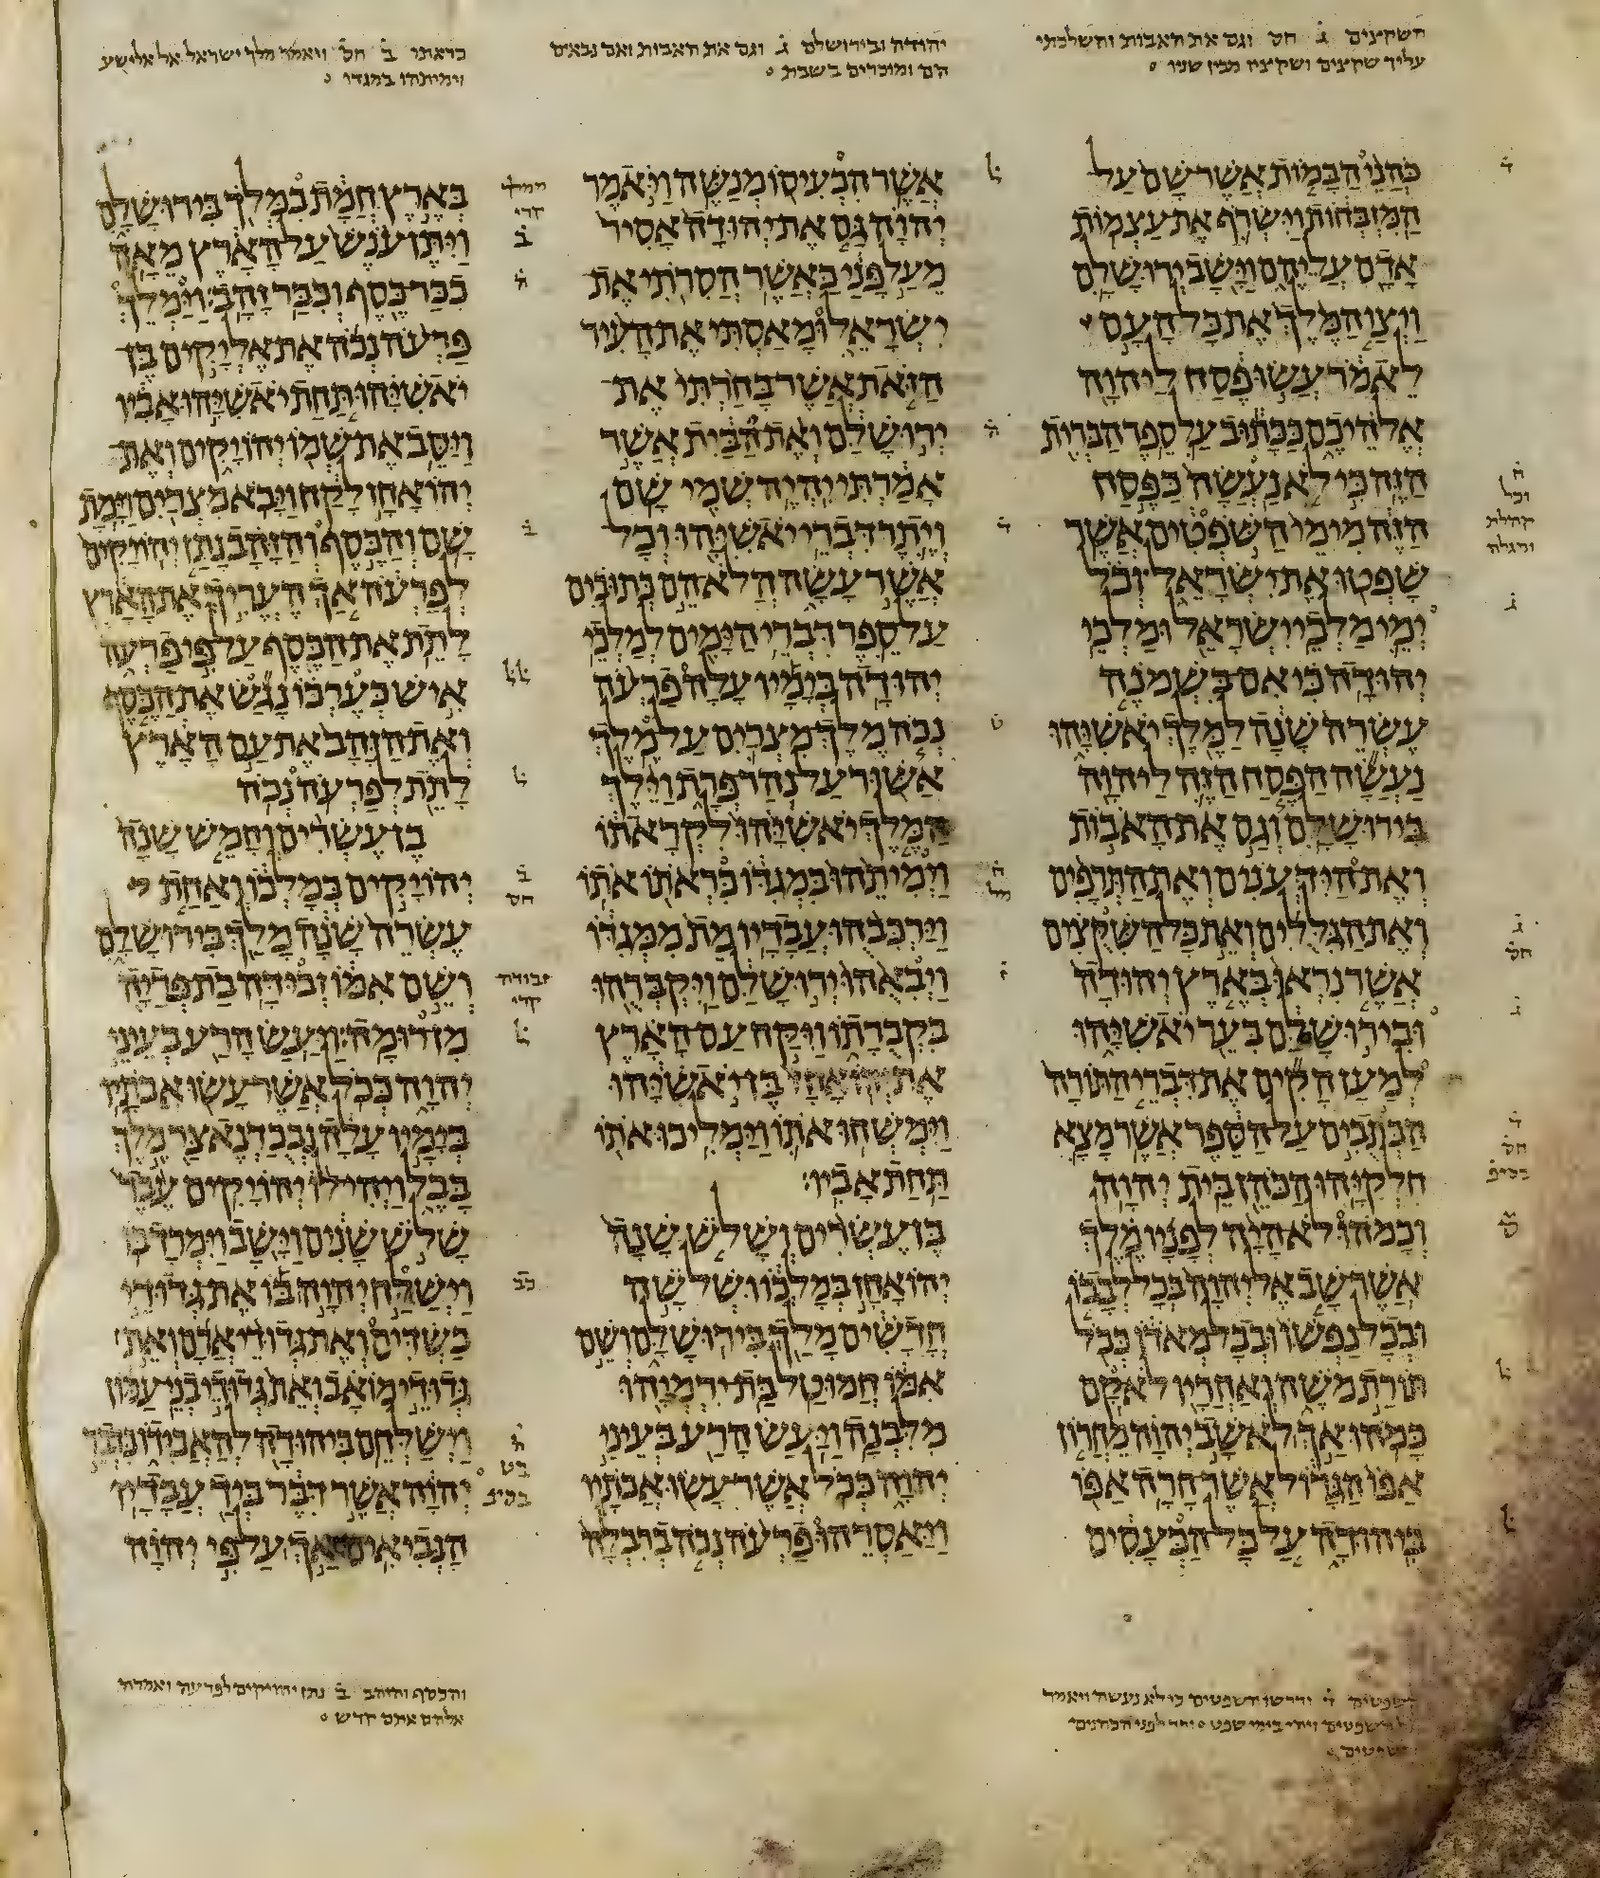 השקצים ג חס וגם את האבות והשלכתי
עליך שקצים ושקציו מבין שניו
יהודה ובירושלם ג וגם את האבות ואם נבאים
הם ומוכרים בשבת
כראתו ב חס ויאמר מלך ישראל אל אלישע
וימיתהו במגדו
כהני הבמות אשר שם על
המזבחות וישרף את עצמות
אדם עליהם וישב ירושלם
ויצו המלך את כל העם
לאמר עשו פסח ליהוה
אלהיכם ככתוב על ספר הברית
הזה כי לא נעשה כפסח
הזה מימי השפטים אשר
שפטו את ישראל וכל
ימי מלכי ישראל ומלכי
יהודה כי אם בשמנה
עשרה שנה למלך יאשיהו
נעשה הפסח הזה ליהוה
בירושלם וגם את האבות
ואת הידענים ואת התרפים
ואת הגללים ואת כל השקצים
אשר נראו בארץ יהודה
ובירושלם בער יאשיהו
למען הקים את דברי התורה
הכתבים על הספר אשר מצא
חלקיהו הכהן בית יהוה
וכמהו לא היה לפניו מלך
אשר שב אל יהוה בכל לבבו
ובכל נפשו ובכל מאדו ככל
תורת משה ואחריו לא קם
כמהו אך לא שב יהוה מחרון
אפו הגדול אשר חרה אפו
ביהודה על כל הכעסים
אשר הכעיסו מנשה ויאמר
יהוה גם את יהודה אסיר
מעל פני כאשר הסרתי את
ישראל ומאסתי את העיר
הזאת אשר בחרתי את
ירושלם ואת הבית אשר
אמרתי יהיה שמי שם
ויתר דברי יאשיהו וכל
אשר עשה הלא הם כתובים
על ספר דברי הימים למלכי
יהודה בימיו עלה פרעה
נכה מלך מצרים על מלך
אשור על נהר פרת וילך
המלך יאשיהו לקראתו
וימיתהו במגדו כראתו אתו
וירכבהו עבדיו מת ממגדו
ויבאהו ירושלם ויקברהו
בקברתו ויקח עם הארץ
את יהואחז בן יאשיהו
וימשחו אתו וימליכו אתו
תחת אביו
בן עשרים ושלש שנה
יהואחז במלכו ושלשה
חדשים מלך בירושלם ושם
אמו חמוטל בת ירמיהו
מלבנה ויעש הרע בעיני
יהוה ככל אשר עשו אבתיו
ויאסרהו פרעה נכה ברבלה
בארץ חמת במלך בירושלם
ויתן ענש על הארץ מאה
ככר כסף וככר זהב וימלך
פרעה נכה את אליקים בן
יאשיהו תחת יאשיהו אביו
ויסב את שמו יהויקים ואת
יהואחז לקח ויבא מצרים וימת
שם והכסף והזהב נתן יהויקים
לפרעה אך העריך את הארץ
לתת את הכסף על פי פרעה
איש כערכו נגש את הכסף
ואת הזהב את עם הארץ
לתת לפרעה נכה
בן עשרים וחמש שנה
יהויקים במלכו ואחת
עשרה שנה מלך בירושלם
ושם אמו זבידה בת פדיה
מן רומה ויעש הרע בעיני
יהוה ככל אשר עשו אבתיו
בימיו עלה נבכדנאצר מלך
בבל ויהי לו יהויקים עבד
שלש שנים וישב וימרד בו
וישלח יהוה בו את גדודי
כשדים ואת גדודי ארם ואת
גדודי מואב ואת גדודי בני עמון
וישלחם ביהודה להאבידו כדבר
יהוה אשר דבר ביד עבדיו
הנביאים אך על פי יהוה
השפטים ד ודרשו השפטים כי לא נעשה ויאמר
השפטים ויהי בימי שפט לפני הכהנים
והכסף והזהב ב נתן יהויקים לפרעה ואמרת
אלהם אתם קדש